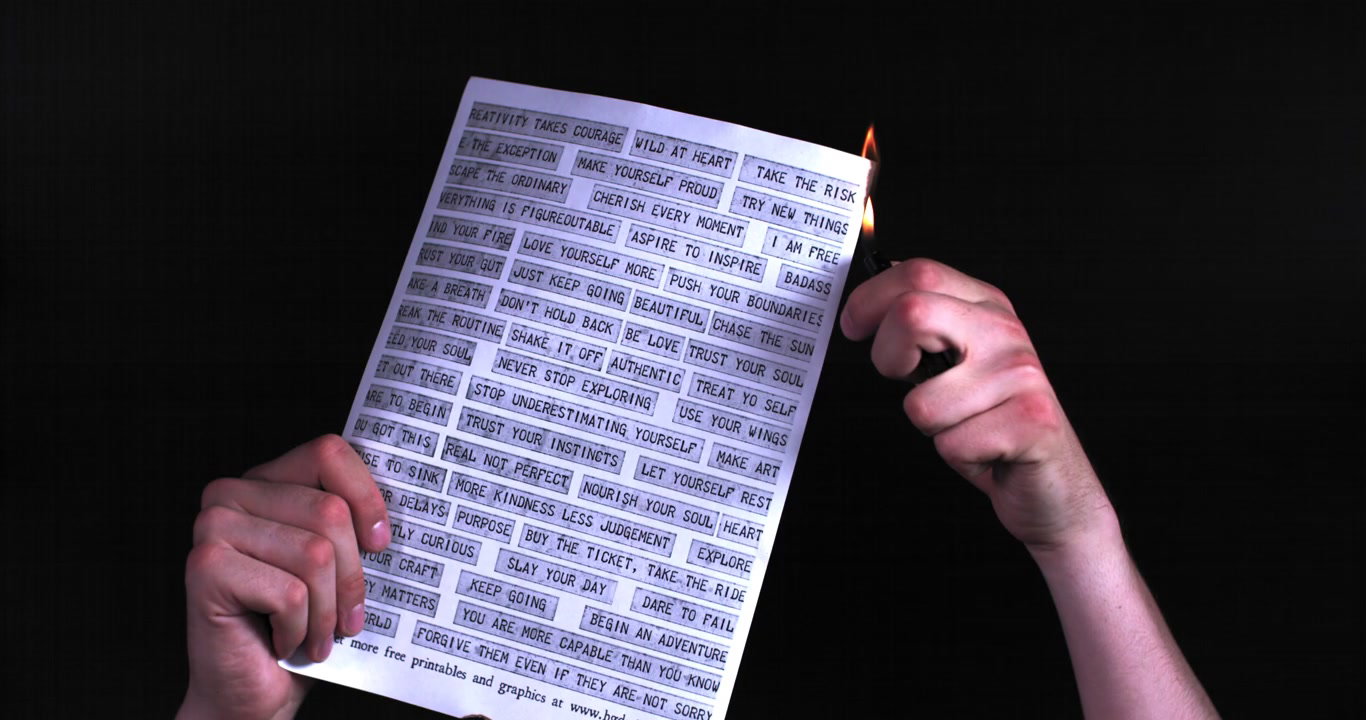 REATIVITY TAKES COURAGE WILD AT HEART TAKE THE RISK
E THE EXCEPTION MAKE YOURSELF PROUD TRY NEW THINGS
SCAPE THE ORDINARY CHERISH EVERY MOMENT I AM FREE
VERYTHING IS FIGUREOUTABLE ASPIRE TO INSPIRE BADASS
IND YOUR FIRE LOVE YOURSELF MORE PUSH YOUR BOUNDARIES
RUST YOUR GUT JUST KEEP GOING BEAUTIFUL CHASE THE SUN
AKE A BREATH DON'T HOLD BACK BE LOVE TRUST YOUR SOUL
REAK THE ROUTINE SHAKE IT OFF AUTHENTIC TREAT YO SELF
EED YOUR SOUL NEVER STOP EXPLORING USE YOUR WINGS
ET OUT THERE STOP UNDERESTIMATING YOURSELF MAKE ART
ARE TO BEGIN TRUST YOUR INSTINCTS LET YOURSELF REST
OU GOT THIS REAL NOT PERFECT NOURISH YOUR SOUL HEART
USE TO SINK MORE KINDNESS LESS JUDGEMENT EXPLORE
OR DELAYS PURPOSE BUY THE TICKET, TAKE THE RIDE
TLY CURIOUS SLAY YOUR DAY DARE TO FAIL
YOUR CRAFT KEEP GOING BEGIN AN ADVENTURE
PY MATTERS YOU ARE MORE CAPABLE THAN YOU KNOW
ORLD FORGIVE THEM EVEN IF THEY ARE NOT SORRY
et more free printables and graphics at www.hgd